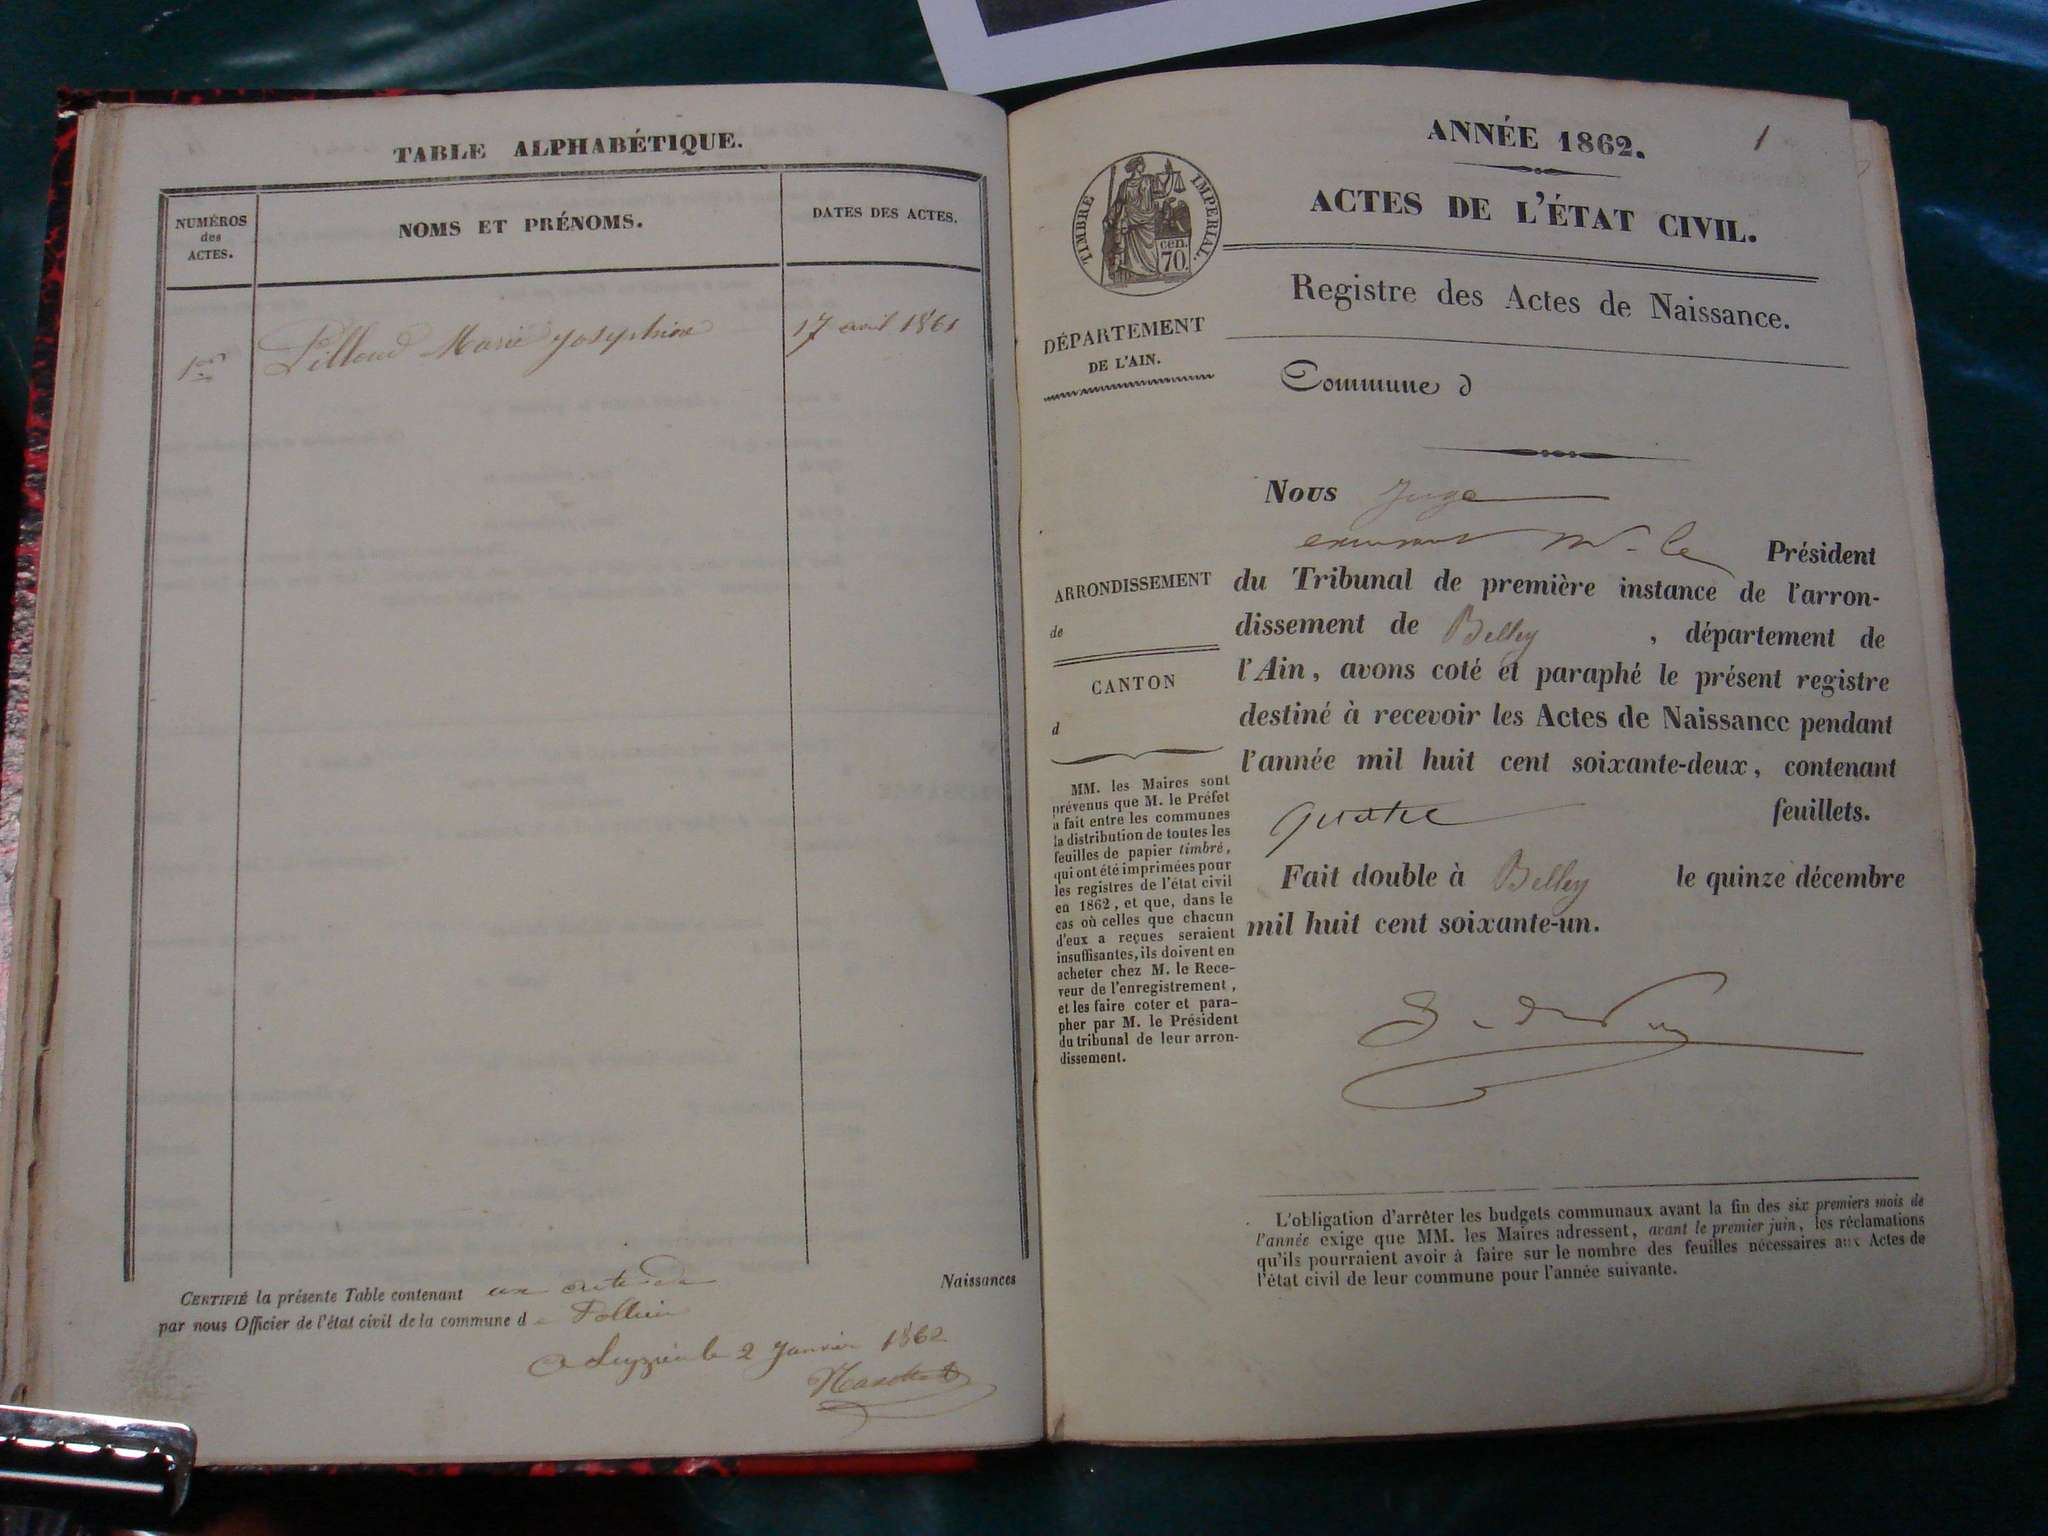 TABLE ALPHABÉTIQUE.
NUMÉROS
des
ACTES.
NOMS ET PRÉNOMS.
DATES DES ACTES.
1er Pilloud Marie josephine 17 avril 1861
CERTIFIÉ la présente Table contenant un acte de Naissances
par nous Officier de l'état civil de la commune de Pollieu
le 2 Janvier 1862
ANNÉE 1862.
1
ACTES DE L'ÉTAT CIVIL.
TIMBRE IMPERIAL.
cen.
70.
Registre des Actes de Naissance.
DÉPARTEMENT
DE L'AIN.
Commune d
Nous Juge
Mr le Président
du Tribunal de première instance de l'arron-
dissement de Belley, département de
l'Ain, avons coté et paraphé le présent registre
destiné à recevoir les Actes de Naissance pendant
l'année mil huit cent soixante-deux, contenant
quatre feuillets.
Fait double à Belley le quinze décembre
mil huit cent soixante-un.
ARRONDISSEMENT
de
CANTON
d
MM. les Maires sont
prévenus que M. le Préfet
a fait entre les communes
la distribution de toutes les
feuilles de papier timbré,
qui ont été imprimées pour
les registres de l'état civil
en 1862, et que, dans le
cas où celles que chacun
d'eux a reçues seraient
insuffisantes, ils doivent en
acheter chez M. le Rece-
veur de l'enregistrement,
et les faire coter et para-
pher par M. le Président
du tribunal de leur arron-
dissement.
L'obligation d'arrêter les budgets communaux avant la fin des six premiers mois de
l'année exige que MM. les Maires adressent, avant le premier juin, les réclamations
qu'ils pourraient avoir à faire sur le nombre des feuilles nécessaires aux Actes de
l'état civil de leur commune pour l'année suivante.